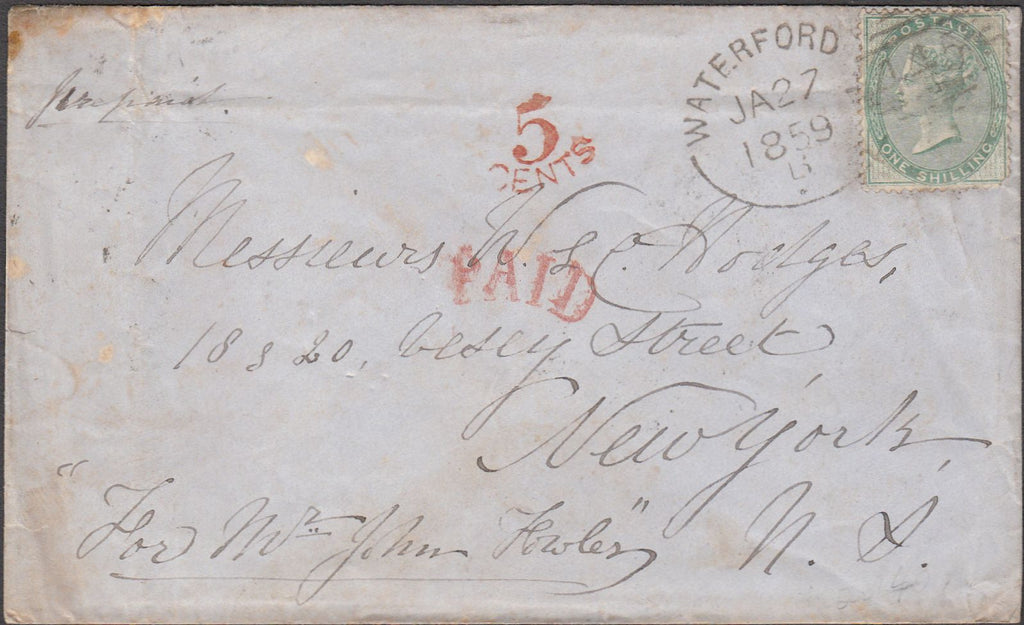 Prepaid.
5
CENTS
WATERFORD
JA 27
1859
POSTAGE
ONE SHILLING
Messieurs & C. Hodges,
PAID
18 & 20, Vesey Street
New York,
"For Mr. John Fowler"
N. S.